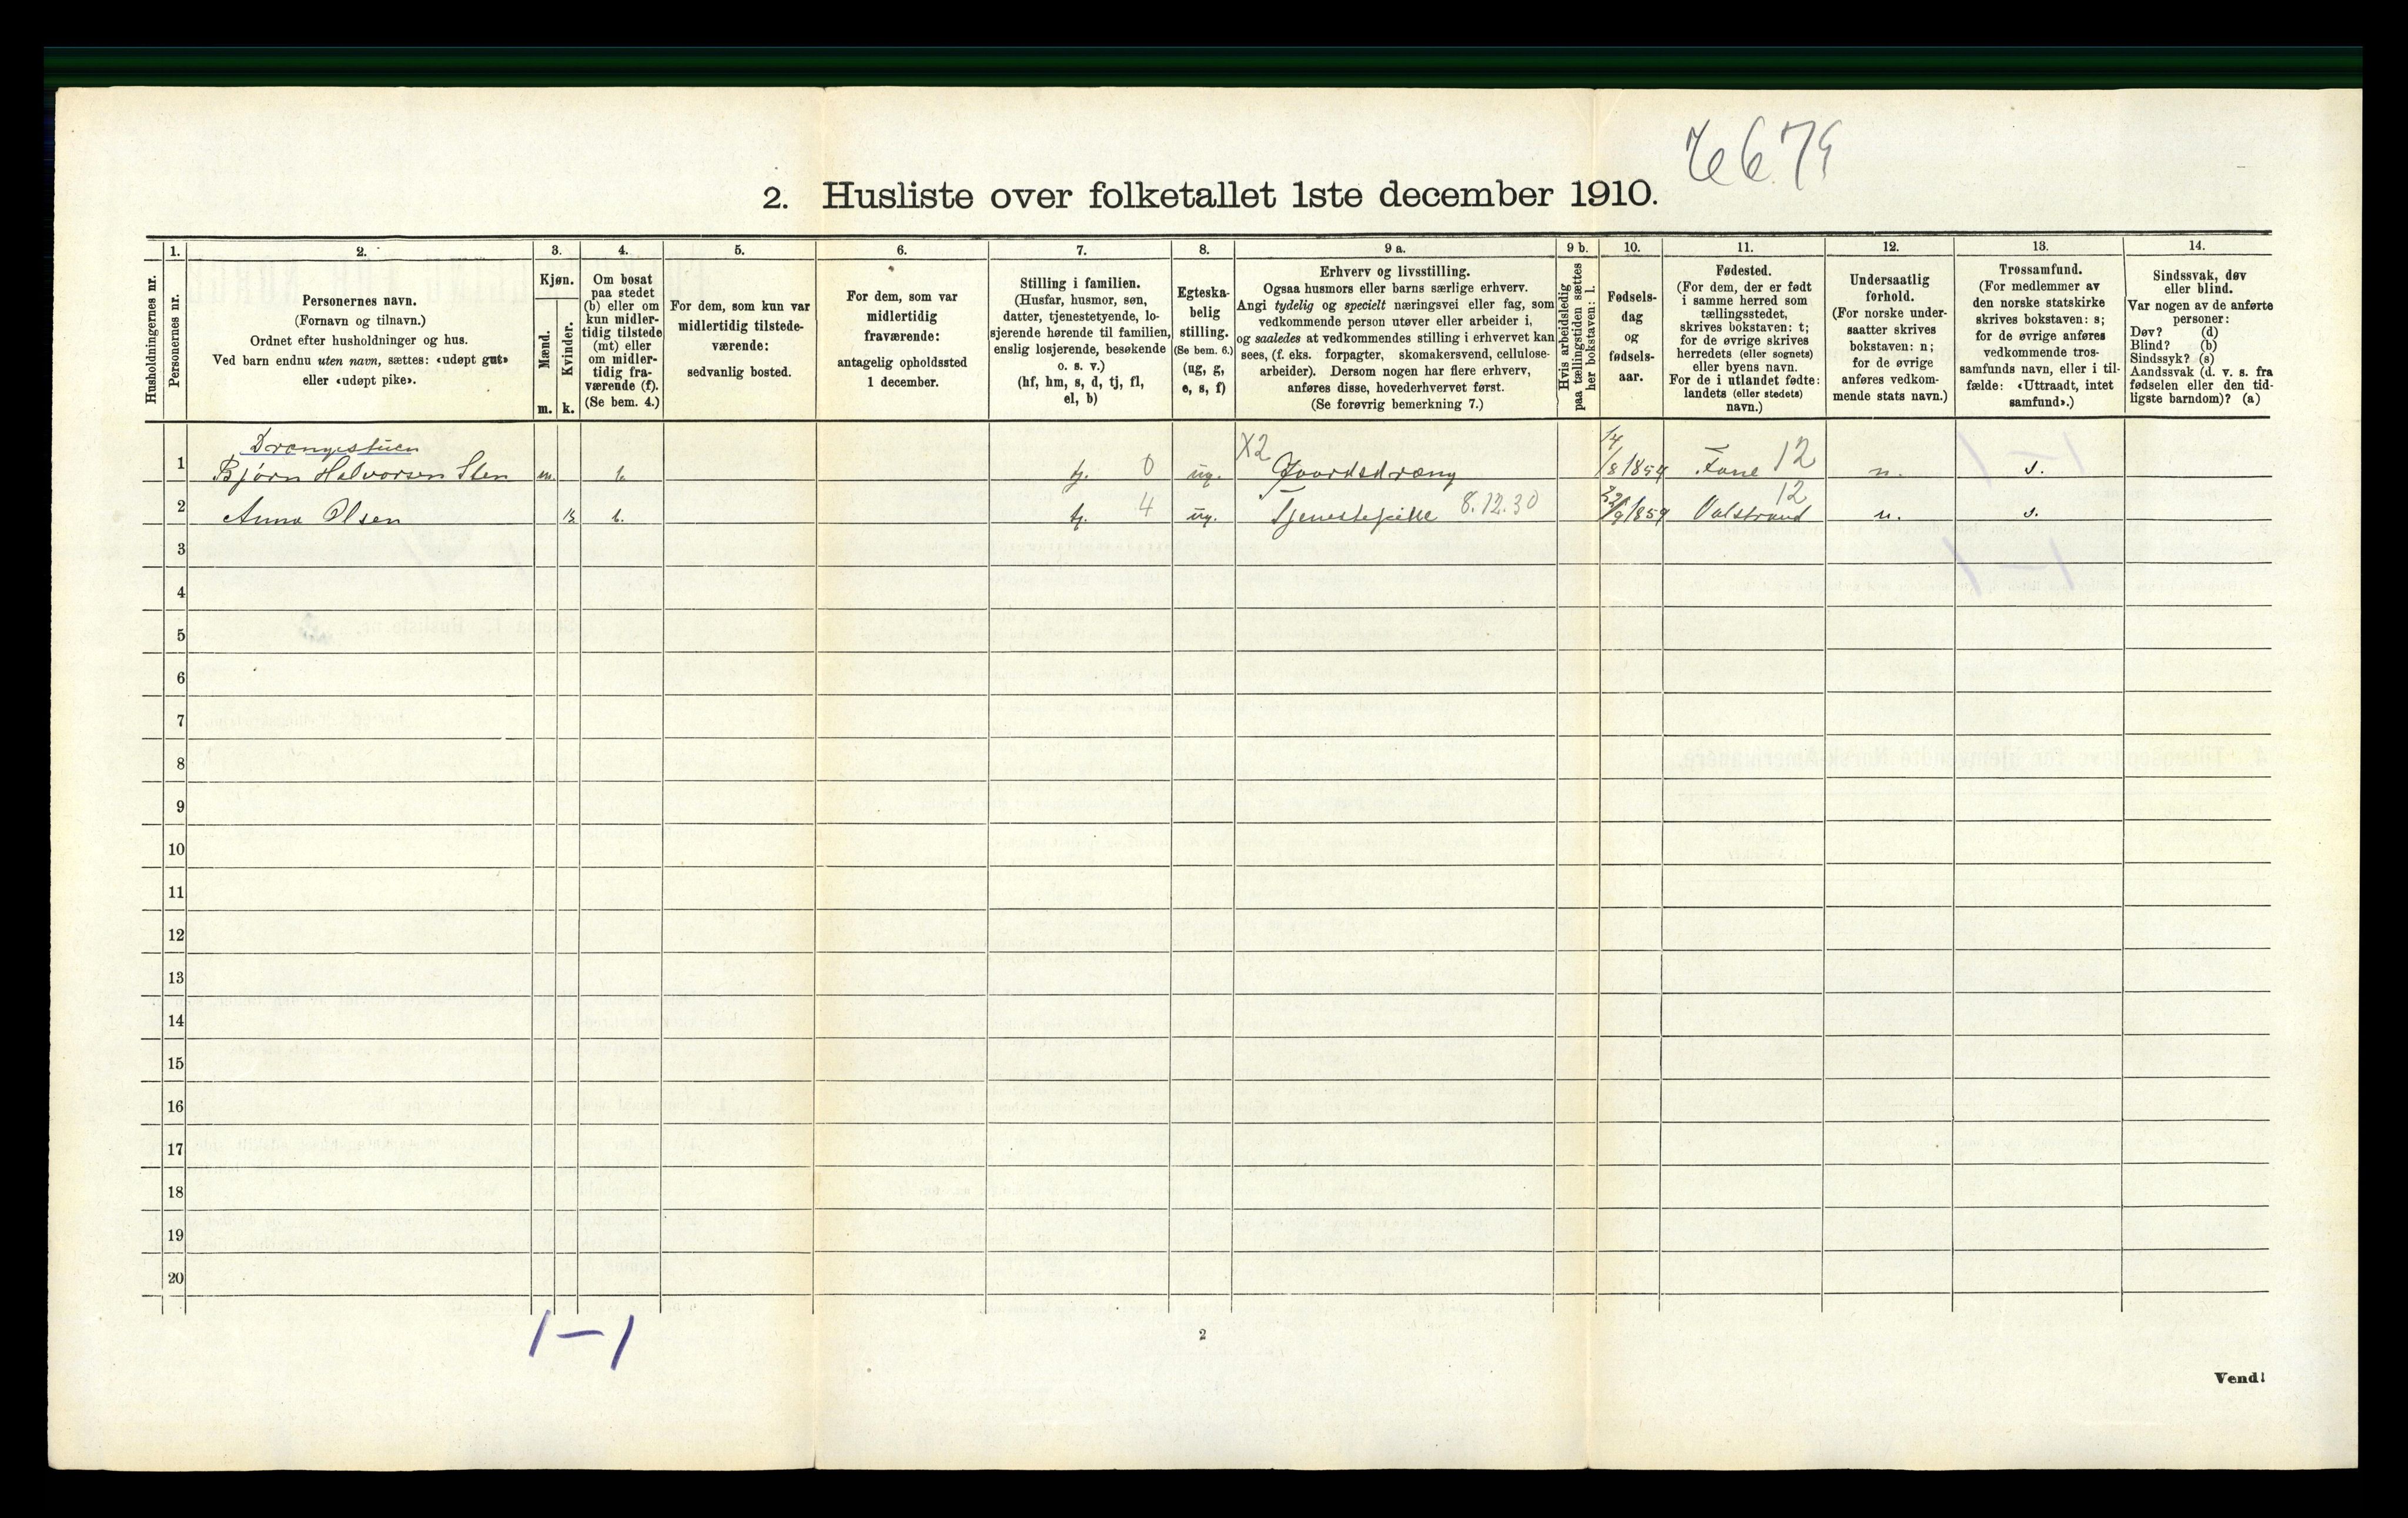 2. Husliste over folketallet 1ste december 1910.
Husholdningernes nr.
1.
Personernes nr.
2.
Personernes navn.
(Fornavn og tilnavn.)
Ordnet efter husholdninger og hus.
Ved barn endnu uten navn, sættes: «udøpt gut»
eller «udøpt pike».
3.
Kjøn.
Mænd.
Kvinder.
m. k.
4.
Om bosat
paa stedet
(b) eller om
kun midler-
tidig tilstede
(mt) eller
om midler-
tidig fra-
værende (f).
(Se bem. 4.)
5.
For dem, som kun var
midlertidig tilstede-
værende:
sedvanlig bosted.
6.
For dem, som var
midlertidig
fraværende:
antagelig opholdssted
1 december.
7.
Stilling i familien.
(Husfar, husmor, søn,
datter, tjenestetyende, lo-
sjerende hørende til familien,
enslig losjerende, besøkende
o. s. v.)
(hf, hm, s, d, tj, fl,
el, b)
8.
Egteska-
belig
stilling.
(Se bem. 6.)
(ug, g,
e, s, f)
9 a.
Erhverv og livsstilling.
Ogsaa husmors eller barns særlige erhverv.
Angi tydelig og specielt næringsvei eller fag, som
vedkommende person utøver eller arbeider i,
og saaledes at vedkommendes stilling i erhvervet kan
sees, (f. eks. forpagter, skomakersvend, cellulose-
arbeider). Dersom nogen har flere erhverv,
anføres disse, hovederhvervet først.
(Se forøvrig bemerkning 7.)
9 b.
Hvis arbeidsledig
paa tællingstiden sættes
her bokstaven: l.
10.
Fødsels-
dag
og
fødsels-
aar.
11.
Fødested.
(For dem, der er født
i samme herred som
tællingsstedet,
skrives bokstaven: t;
for de øvrige skrives
herredets (eller sognets)
eller byens navn.
For de i utlandet fødte:
landets (eller stedets)
navn.)
12.
Undersaatlig
forhold.
(For norske under-
saatter skrives
bokstaven: n;
for de øvrige
anføres vedkom-
mende stats navn.)
13.
Trossamfund.
(For medlemmer av
den norske statskirke
skrives bokstaven: s;
for de øvrige anføres
vedkommende tros-
samfunds navn, eller i til-
fælde: «Uttraadt, intet
samfund».)
14.
Sindssvak, døv
eller blind.
Var nogen av de anførte
personer:
Døv? (d)
Blind? (b)
Sindssyk? (s)
Aandssvak (d. v. s. fra
fødselen eller den tid-
ligste barndom)? (a)
Drengestuen
1 Bjørn Halvorsen Sten m. b. tj. 0 ug. X2 Gaardsdræng 14/8 1854 Fane 12 n. s.
2 Anna Olsen k b. tj. 4 ug. Tjenestepike 8.12.30 1859 Valstrand 12 n. s.
3
4
5
6
7
8
9
10
11
12
13
14
15
16
17
18
19
20
1–1
2
Vend!